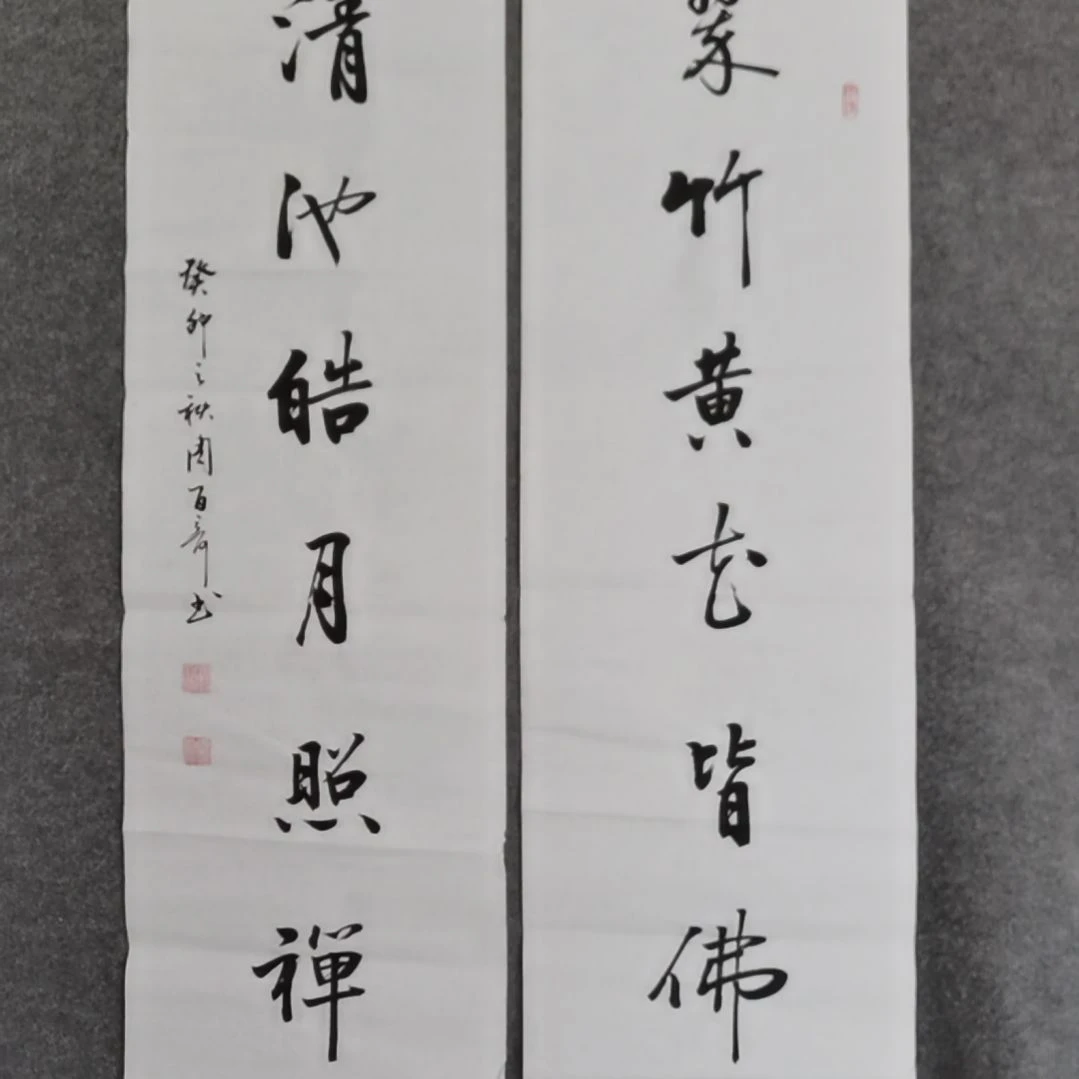 翠竹黄花皆佛
清池皓月照禪
癸卯之秋周百书